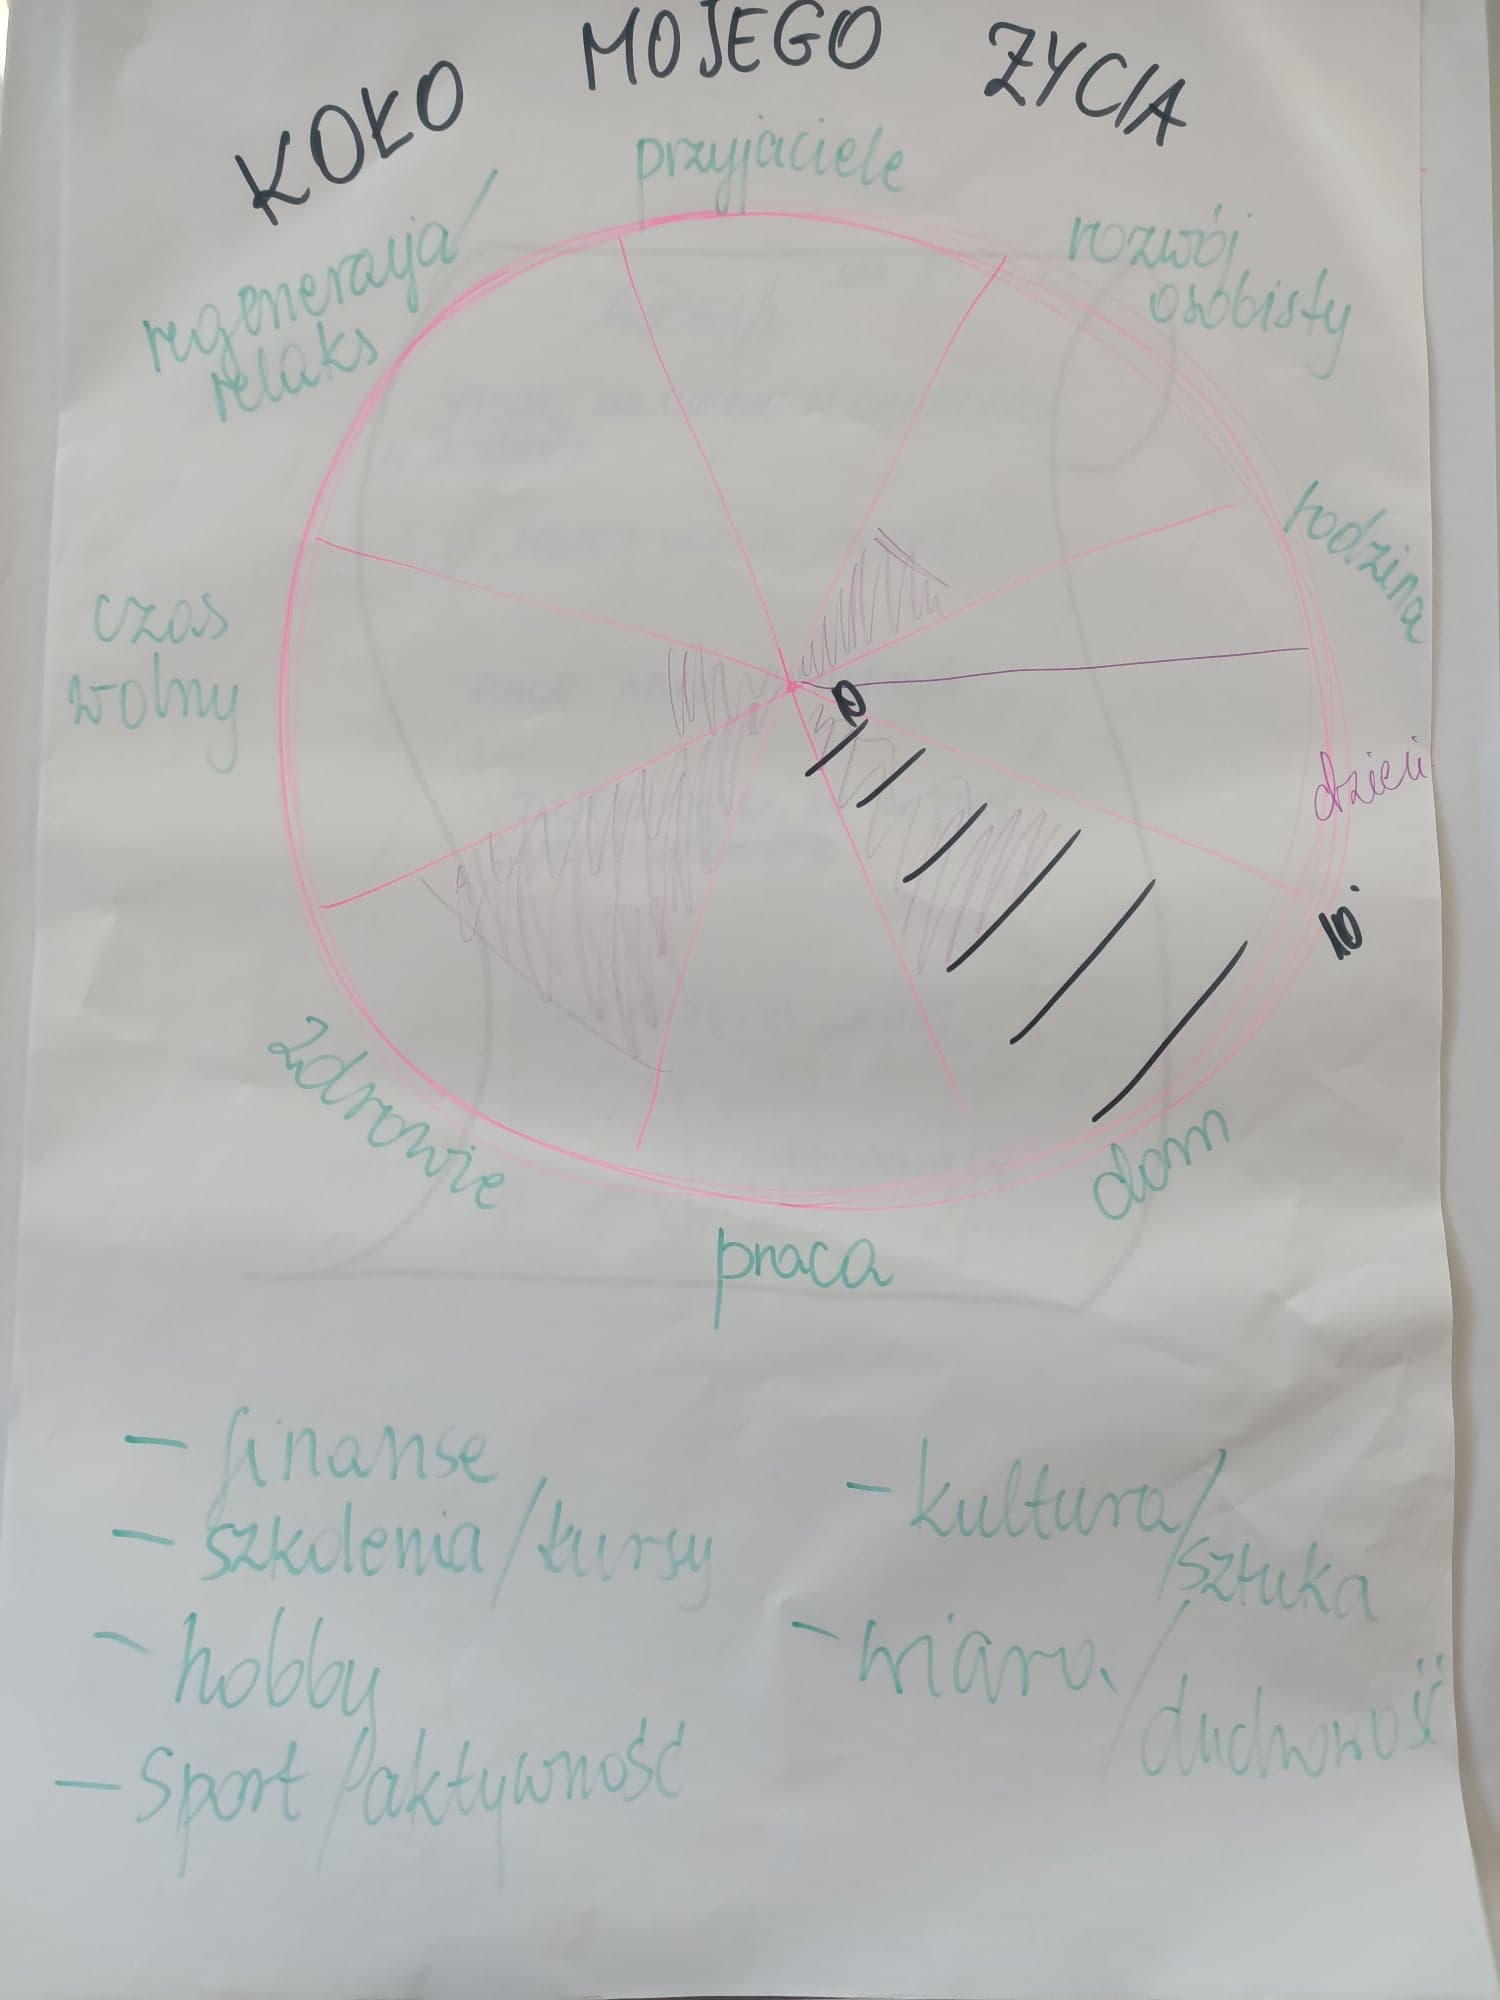 KOŁO MOJEGO ŻYCIA
przyjaciele
rozwój
osobisty
regeneracja/
relaks
rodzina
czas
wolny
0
dzieci
10
zdrowie
dom
praca
- finanse
- szkolenia/kursy
- hobby
- Sport/aktywność
- kultura/
sztuka
- wiara/
duchowość